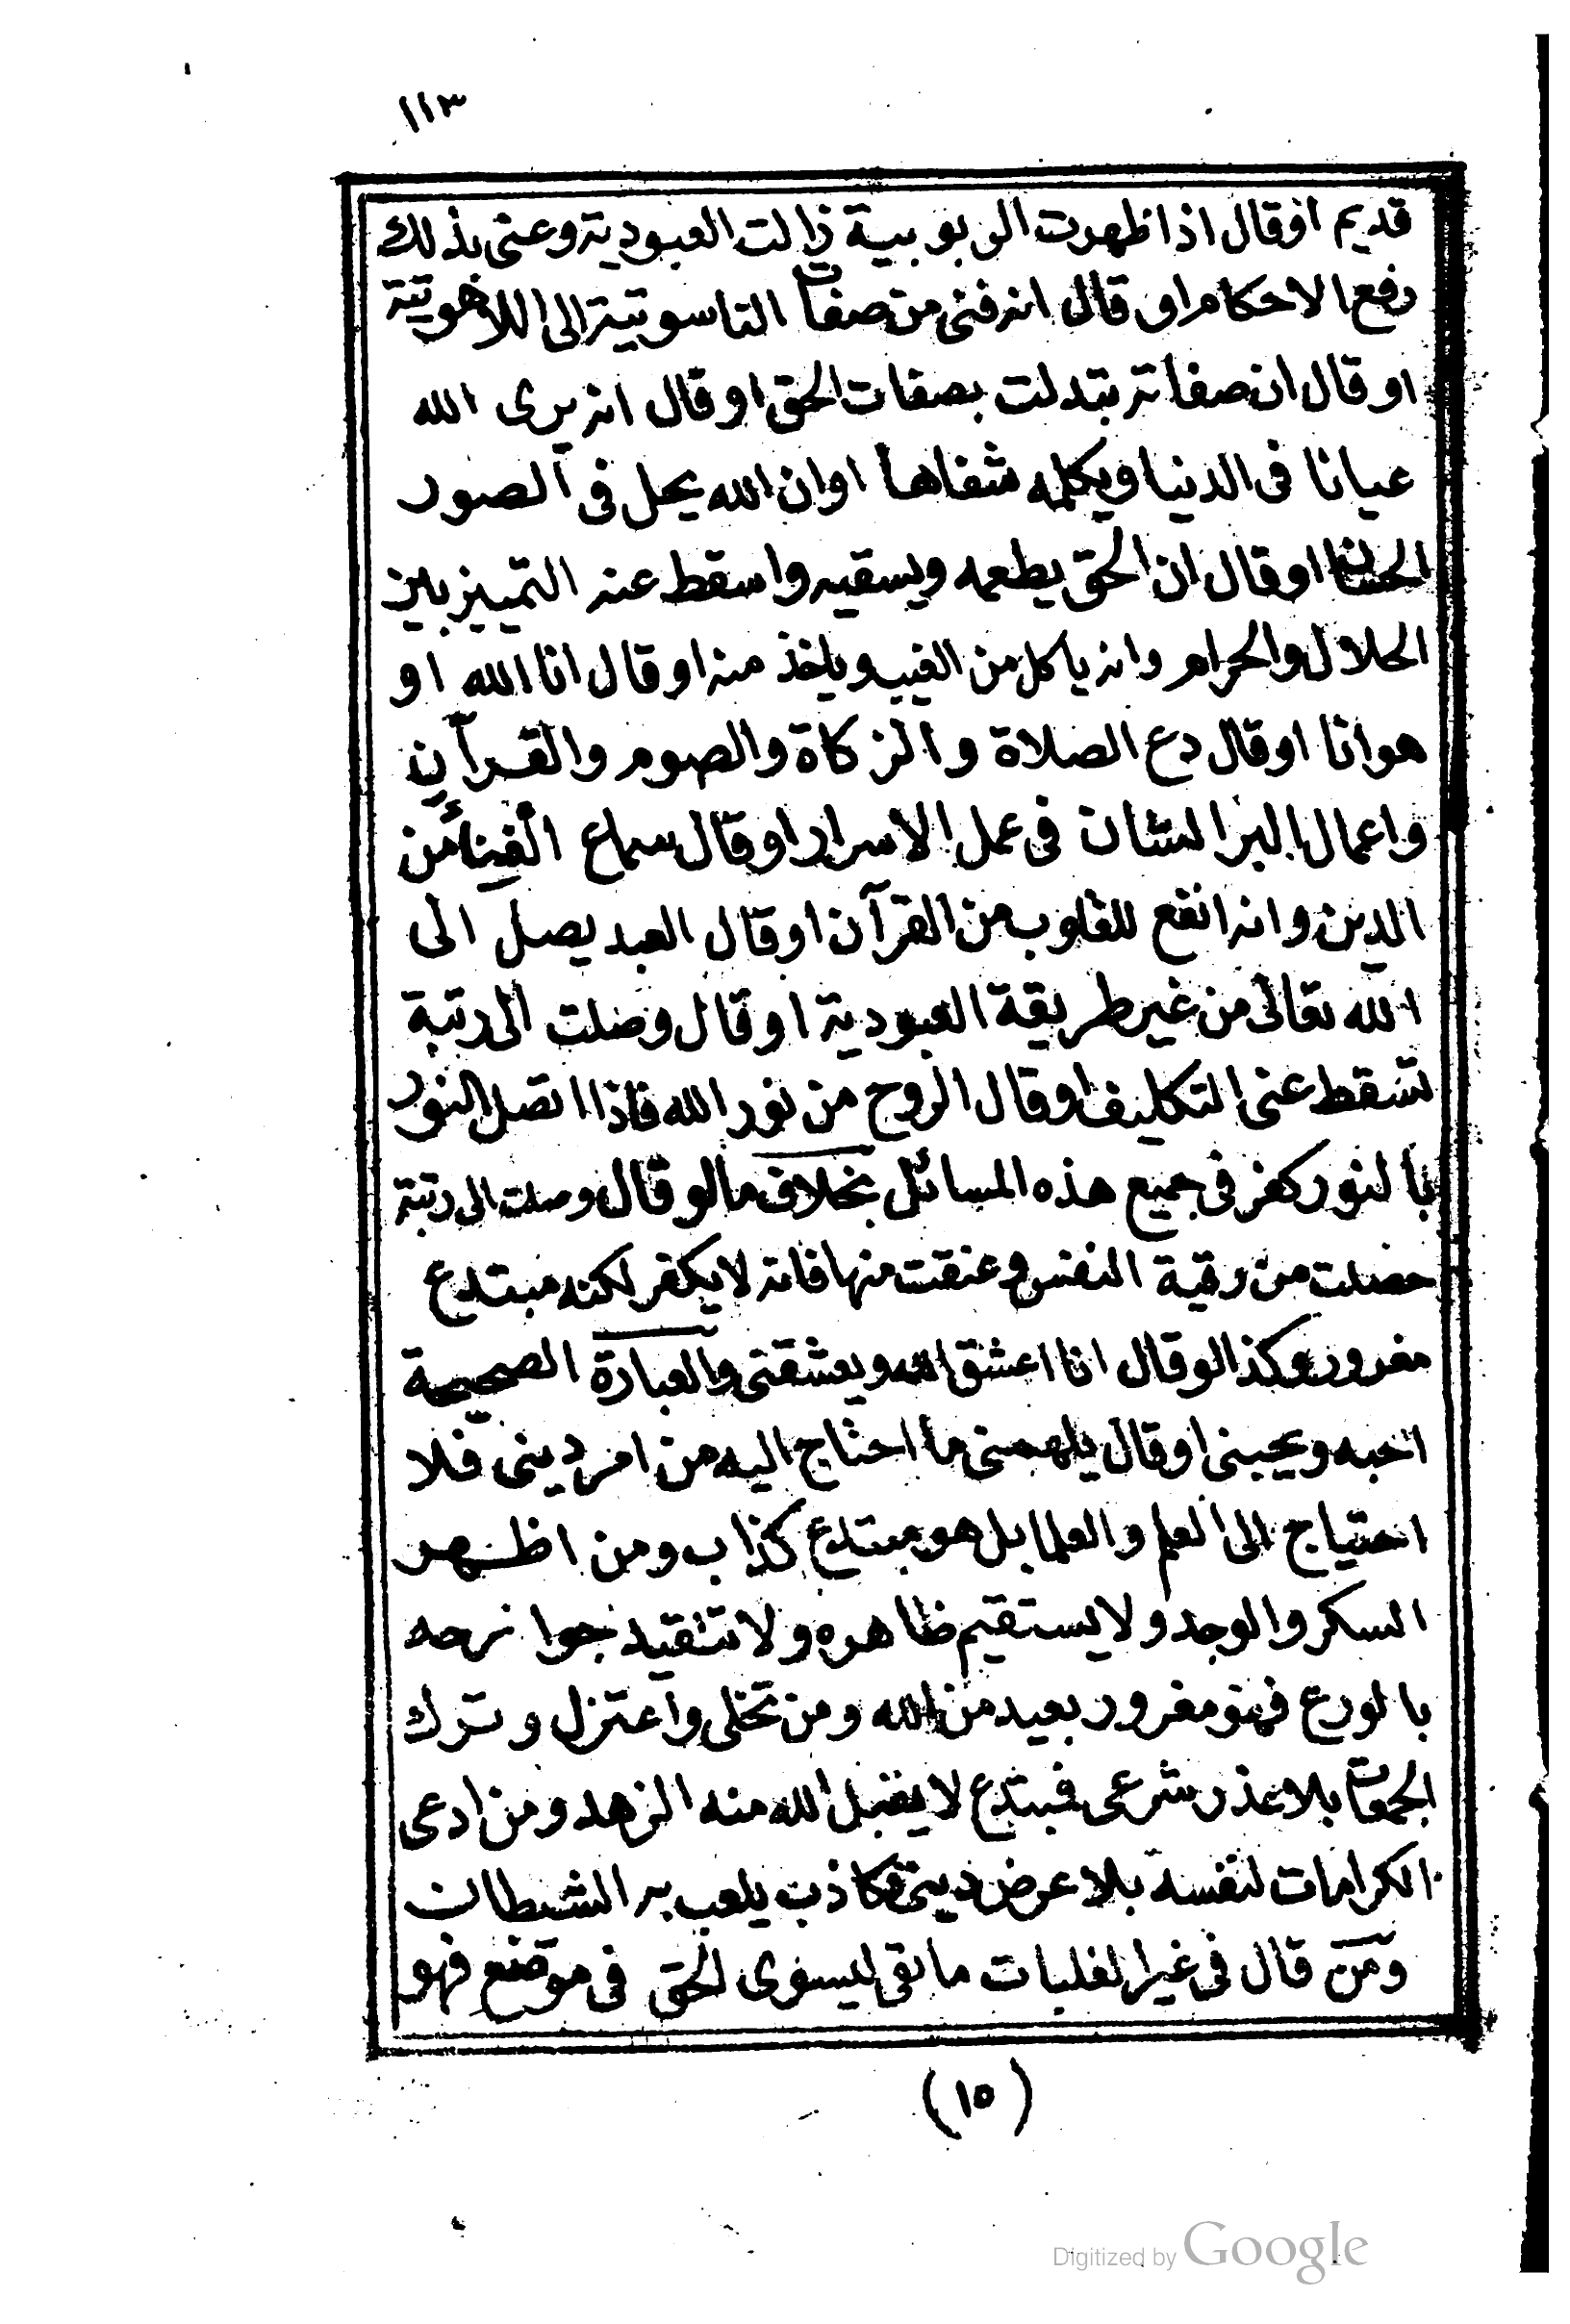 ١١٣
قديم او قال اذا ظهرت الربوبية زالت العبودية وعنى بذلك
رفع الاحكام او قال انه فنى من صفات الناسوتية الى اللاهوتية
او قال ان صفاته تبدلت بصفات الحق او قال انه يرى الله
عيانا فى الدنيا ويكلمه شفاها اوان الله يحل فى الصور
الحسان او قال ان الحق يطعمه ويسقيه واسقط عنه التمييز بين
الحلال والحرام وانه ياكل من الغيب وياخذ منه او قال انا الله او
هو انا او قال دع الصلاة والزكاة والصوم والقرآن
واعمال البر الشان فى عمل الاسرار او قال سماع الغناء من
الدين وانه انفع للقلوب من القرآن او قال العبد يصل الى
الله تعالى من غير طريقة العبودية او قال وصلت الى رتبة
تسقط عنى التكليف او قال الروح من نور الله فاذا اتصل النور
بالنور كفر فى جميع هذه المسائل بخلاف مالو قال وصلت الى رتبة
خلصت من رقية النفس وعتقت منها فانه لا يكفر لكنه مبتدع
مغرور وكذا لو قال انا اعشق الله ويعشقنى والعبارة الصحيحة
احبه ويحبنى او قال يلهمنى ما احتاج اليه من امر دينى فلا
احتياج الى العلم والعلما بل هو مبتدع كذاب ومن اظهر
السكر والوجد ولا يستقيم ظاهره ولا تتقيد جوارحه
بالورع فهو مغرور بعيد من الله ومن تخلى واعتزل وترك
الجمعات بلا عذر شرعى فمبتدع لا يقبل الله منه الزهد ومن ادعى
الكرامات لنفسه بلا عرض دينى فكاذب يلعب به الشيطان
ومن قال فى غير الغلبات ما بقى ليسوى الحق فى موضع فهو
(١٥)
Digitized by Google